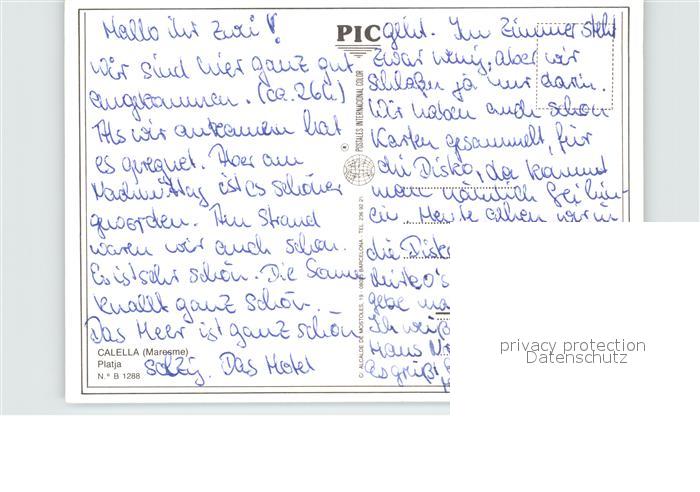 Hallo ihr Zwei!
wir sind hier ganz gut
angekommen. (ca. 26h.)
Als wir ankamen hat
es geregnet. Aber am
Nachmittag ist es schöner
geworden. Am Strand
waren wir auch schon.
Es ist sehr schön. Die Sonne
knallt ganz schön.
Das Meer ist ganz schön
salzig. Das Hotel
CALELLA (Maresme)
Platja
N.° B 1288
PIC
POSTALES INTERNACIONAL COLOR
C/ ALCALDE DE MOSTOLES, 19 BARCELONA TEL. 236 92 21
geht. Im Zimmer steht
zwar wenig, aber wir
schlafen ja nur darin.
Wir haben auch schon
Karten gesammelt, für
die Disko, da kommt
man nämlich frei hin-
ein. Heute gehen wir in
die Disko
gebe
Ich weiß
Haus
es grüßt
privacy protection
Datenschutz